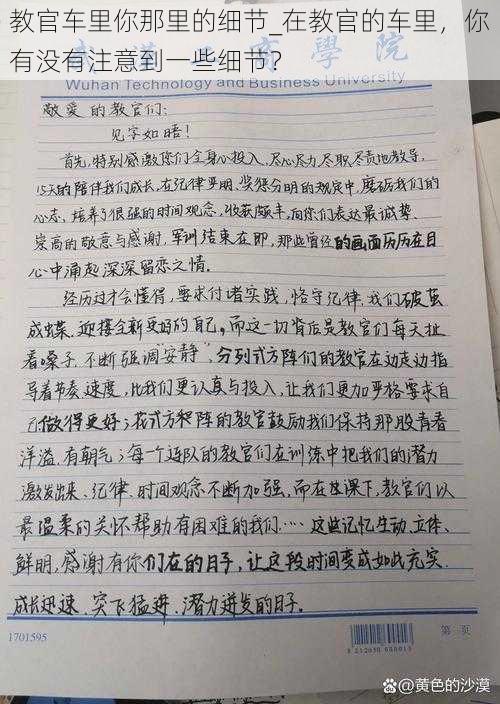 教官车里你那里的细节_在教官的车里，你
有没有注意到一些细节？
Wuhan Technology and Business University
敬爱的教官们：
见字如晤！
首先，特别感激您们全身心投入、尽心尽力、尽职尽责地教导，
15天的陪伴我们成长，在纪律严明、奖惩分明的规定中，磨砺我们的
心态，培养了很强的时间观念，收获颇丰，向你们表达最诚挚、
崇高的敬意与感谢，军训结束在即，那些曾经的画面历历在目
心中涌起深深留恋之情。
经历过才会懂得，要求付诸实践，恪守纪律，我们破茧
成蝶，迎接全新更好的自己。而这一切背后是教官们每天扯
着嗓子，不断强调安静，分列式方阵们的教官在边走边指
导着节奏、速度，比我们更认真与投入，让我们更加严格要求自
己做得更好；花式方矩阵的教官鼓励我们保持那股青春
洋溢、有朝气；每一个连队的教官们在训练中把我们的潜力
激发出来、纪律、时间观念不断加强，而在这课下，教官们以
最温柔的关怀帮助有困难的我们……这些记忆生动、立体、
鲜明，感谢有你们在的日子，让这段时间变成如此充实、
成长迅速、突飞猛进、潜力迸发的日子。
1701595
第 页
黄色的沙漠